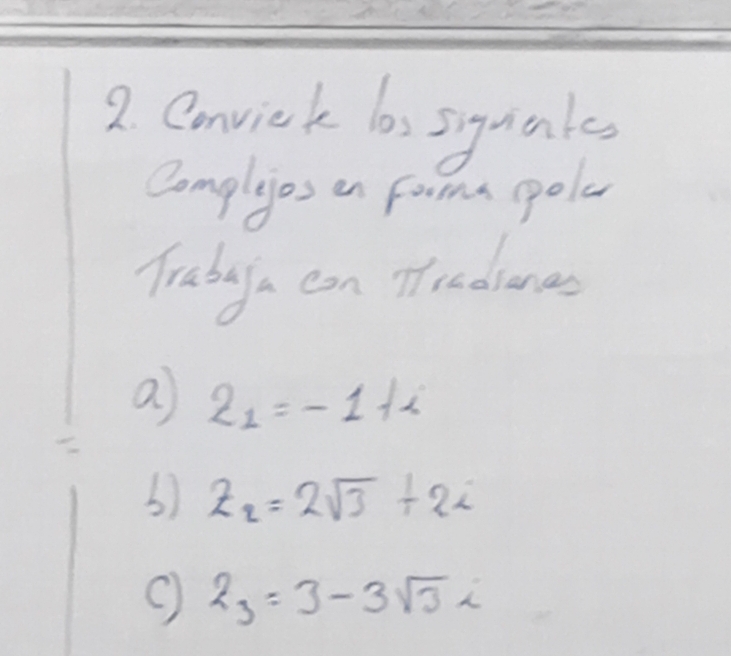 2. Convierte los siguientes
Complejos en forma polar
Trabaja con π radianes
a) z₁ = -1 + i
b) z₂ = 2√3 + 2i
c) z₃ = 3 - 3√3 i